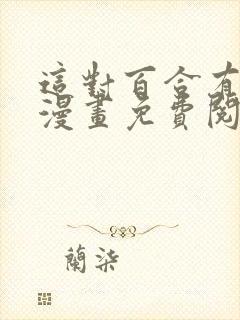 這對百合有
漫畫免費閱
蘭柒